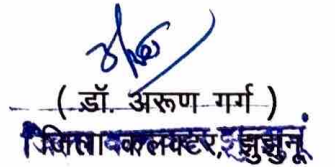 ( डॉ. अरूण गर्ग )
जिला कलक्टर, झुझुनूं